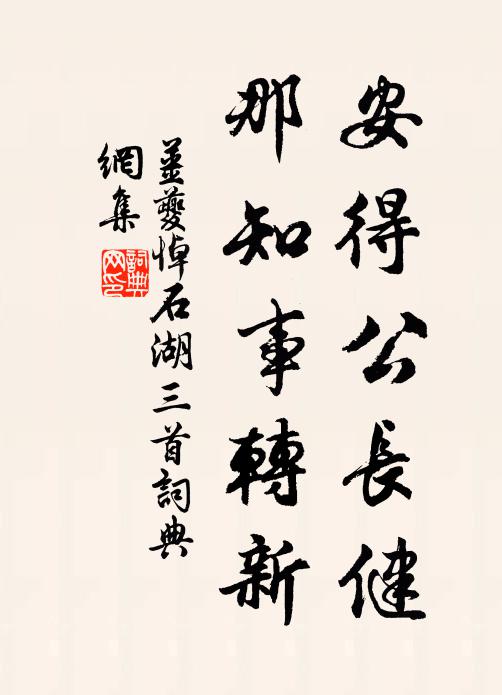 安得公長健
那知事轉新
姜夔悼石湖三首詞典
網集
詞典
网印